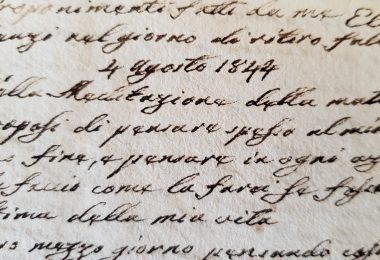 roponimenti fatti da me El
anzi nel giorno di ritiro fatt
4 agosto 1844
alla Meditazione della mat
roposi di pensare spesso al mio
e fine, e pensare in ogni az
faccio come la farei se foss
tima della mia vita
mezzo giorno pensando